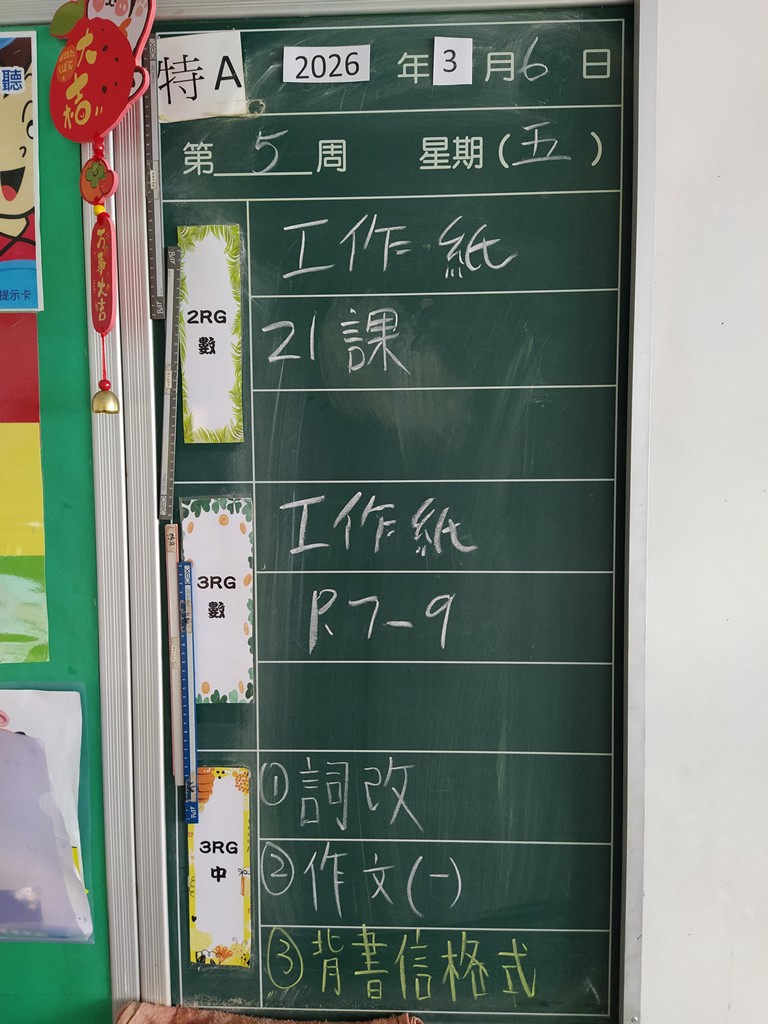 大吉
大事大吉
聽
提示卡
特A
2026 年 3 月 6 日
第 5 周 星期(五)
2RG
數
工作紙
21課
3RG
數
工作紙
P.7-9
3RG
中
①詞改
②作文(一)
③背書信格式